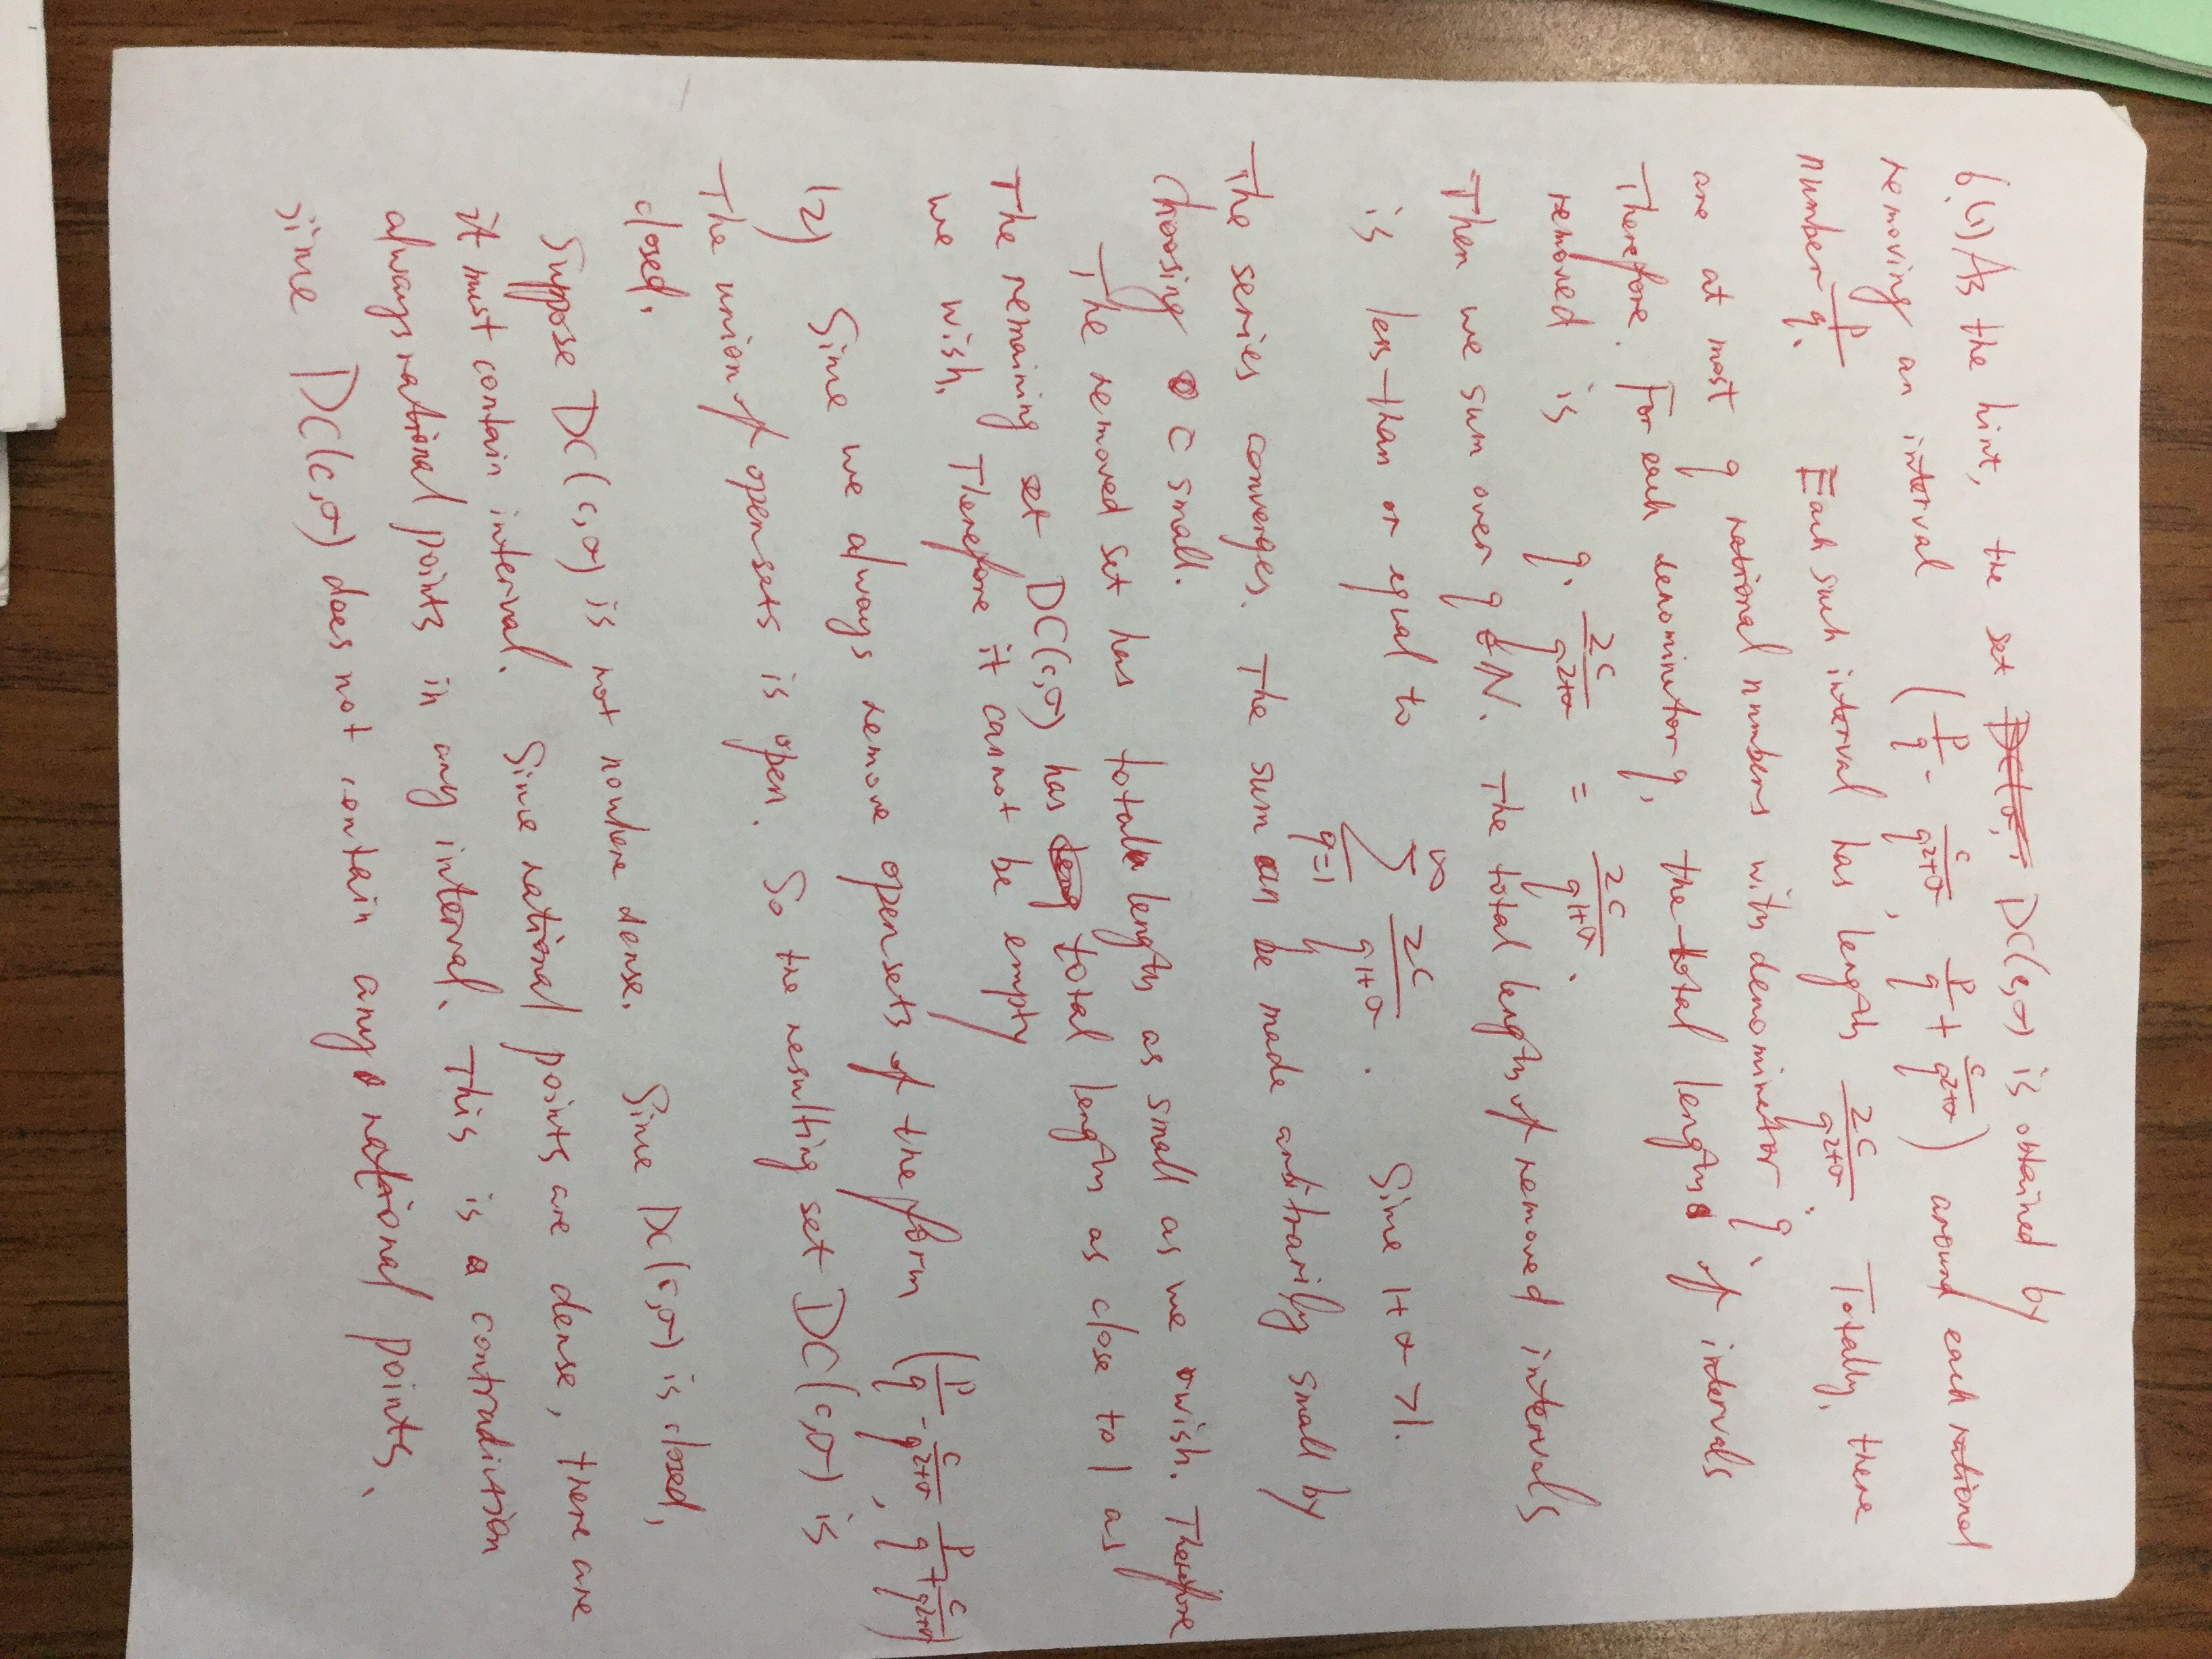 6(1) As the hint, the set DC(c,σ) is obtained by
removing an interval (p/q - c/q^{2+σ}, p/q + c/q^{2+σ}) around each rational
number p/q. Each such interval has length 2c/q^{2+σ}. Totally, there
are at most q rational numbers with denominator q.
Therefore, For each denominator q, the total length of intervals
removed is q · 2c/q^{2+σ} = 2c/q^{1+σ}.
Then we sum over q ∈ N. The total length of removed intervals
is less than or equal to ∑_{q=1}^{∞} 2c/q^{1+σ}. Since 1+σ >1.
The series converges. The sum can be made arbitrarily small by
choosing c small.
The removed set has total length as small as we wish. Therefore
The remaining set DC(c,σ) has total length as close to 1 as
we wish. Therefore it cannot be empty
(2) Since we always remove open sets of the form (p/q - c/q^{2+σ}, p/q + c/q^{2+σ})
The union of open sets is open. So the resulting set DC(c,σ) is
closed.
Suppose DC(c,σ) is not nowhere dense. Since DC(c,σ) is closed,
it must contain interval. Since rational points are dense, there are
always rational points in any interval. This is a contradiction
since DC(c,σ) does not contain any rational points.